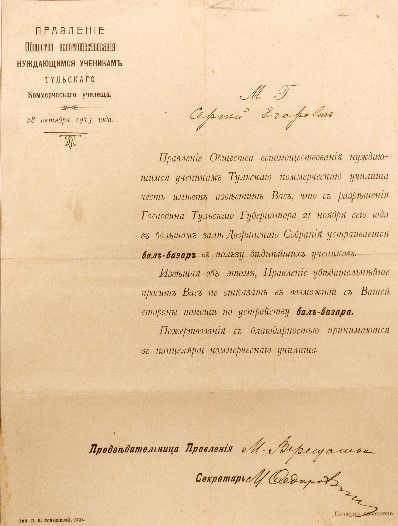 ПРАВЛЕНІЕ
Общества вспомоществованія
НУЖДАЮЩИМСЯ УЧЕНИКАМЪ
ТУЛЬСКАГО
Коммерческаго училища.
28 октября 1913 года.
М Г
Сергѣй Егоровичъ
Правленіе Общества вспомоществованія нуждаю-
щимся ученикамъ Тульскаго коммерческаго училища
честь имѣетъ извѣстить Васъ, что съ разрѣшенія
Господина Тульскаго Губернатора 21 ноября сего года
въ большомъ залѣ Дворянскаго Собранія устраивается
балъ-базаръ въ пользу бѣднѣйшихъ учениковъ.
Извѣщая объ этомъ, Правленіе убѣдительнѣйше
проситъ Васъ не отказать въ возможной съ Вашей
стороны помощи по устройству балъ-базара.
Пожертвованія съ благодарностью принимаются
въ канцеляріи коммерческаго училища.
Предсѣдательница Правленія М.
Секретарь
Тип.